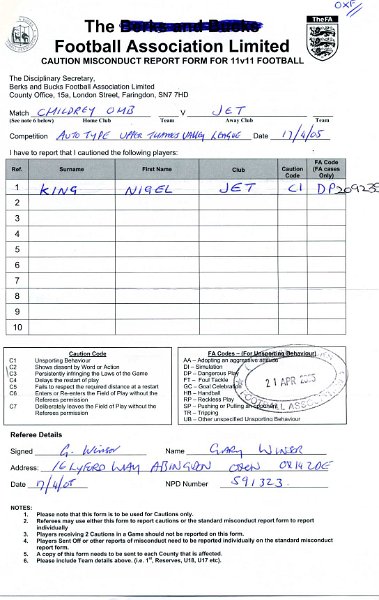 OXF
The Berks and Bucks
Football Association Limited
CAUTION MISCONDUCT REPORT FORM FOR 11v11 FOOTBALL
The FA
The Disciplinary Secretary,
Berks and Bucks Football Association Limited
County Office, 15a, London Street, Faringdon, SN7 7HD
Match CHILDREY OMB V JET
(See note 6 below) Home Club Team Away Club Team
Competition AUTO TYPE UPPER THAMES VALLEY LEAGUE Date 17/4/05
I have to report that I cautioned the following players:
Ref. Surname First Name Club Caution Code FA Code (FA cases Only)
1 KING NIGEL JET C1 DP 209235
2
3
4
5
6
7
8
9
10
Caution Code
C1 Unsporting Behaviour
C2 Shows dissent by Word or Action
C3 Persistently infringing the Laws of the Game
C4 Delays the restart of play
C5 Fails to respect the required distance at a restart
C6 Enters or Re-enters the Field of Play without the
Referees permission
C7 Deliberately leaves the Field of Play without the
Referees permission
FA Codes – (For Unsporting Behaviour)
AA – Adopting an aggressive attitude
DI – Simulation
DP – Dangerous Play
FT – Foul Tackle
GC – Goal Celebration
HB – Handball
RP – Reckless Play
SP – Pushing or Pulling an opponent
TR – Tripping
UB – Other unspecified Unsporting Behaviour
21 APR 2005
FOOTBALL ASSOCIATION
Referee Details
Signed G. Winser Name GARY WINSER
Address: 16 LYFORD WAY ABINGDON OXON OX14 2DE
Date 17/4/05 NPD Number 591323
NOTES:
1. Please note that this form is to be used for Cautions only.
2. Referees may use either this form to report cautions or the standard misconduct report form to report
individually
3. Players receiving 2 Cautions in a Game should not be reported on this form.
4. Players Sent Off or other reports of misconduct need to be reported individually on the standard misconduct
report form.
5. A copy of this form needs to be sent to each County that is affected.
6. Please include Team details above. (i.e. 1st, Reserves, U18, U17 etc).